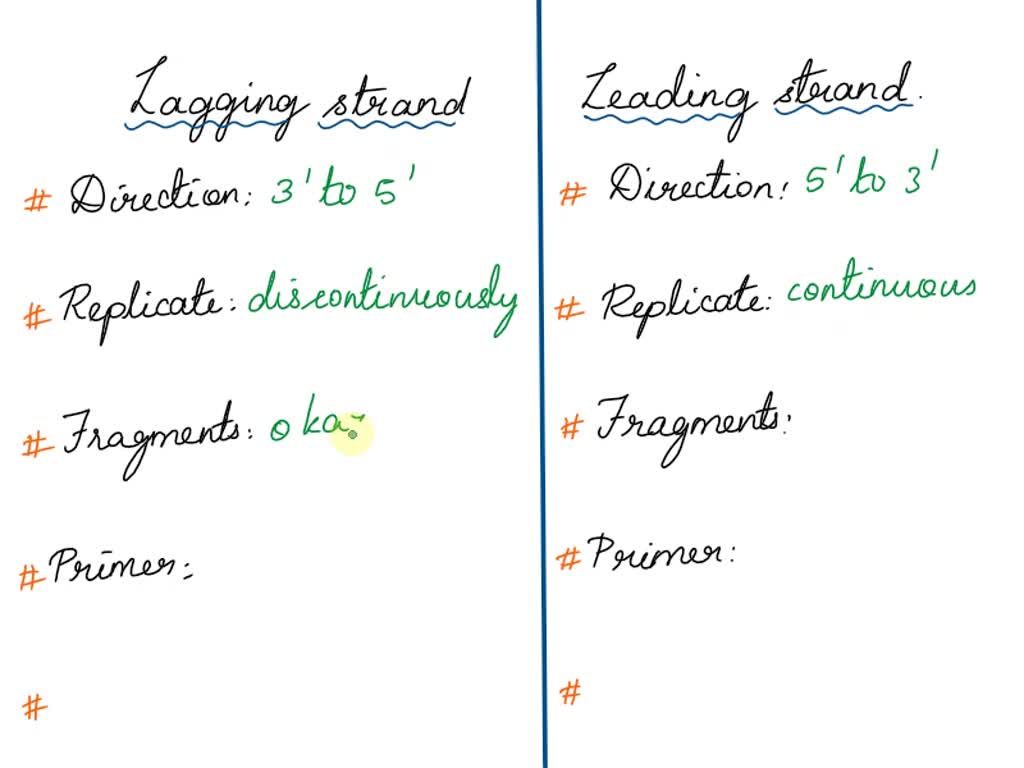 Lagging strand
# Direction: 3' to 5'
# Replicate: discontinuously
# Fragments: oka
# Primer:
#
Leading strand.
# Direction: 5' to 3'
# Replicate: continuous
# Fragments:
# Primer:
#